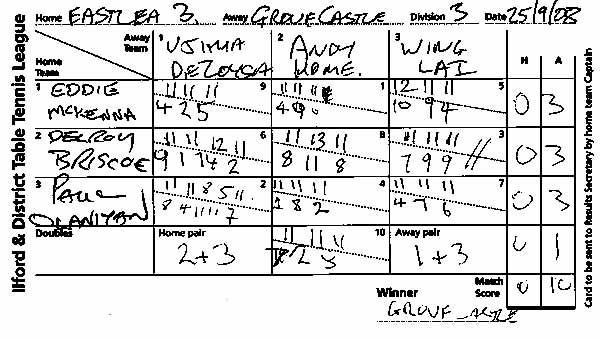 Ilford & District Table Tennis League
Home EASTLEA 3 Away GROVE CASTLE Division 3 Date 25/9/08
Away Team 1 2 ANDY HOME. 3 WING LAI H A
Home Team
1 EDDIE MCKENNA 9 11 11 11 4 2 5 1 11 11 11 5 12 11 11 10 9 4 0 3
2 DELROY BRISCOE 6 11 11 12 11 9 1 14 2 8 11 13 11 8 11 8 3 11 11 11 7 9 9 0 3
3 PAUL OLANIYAN 2 11 11 8 5 11 8 4 11 11 7 4 11 11 11 8 2 7 11 11 11 4 7 6 0 3
Doubles Home pair 2+3 10 11 11 11 Away pair 1+3 0 1
Winner GROVE CASTLE Match Score 0 10
Card to be sent to Results Secretary by home team Captain